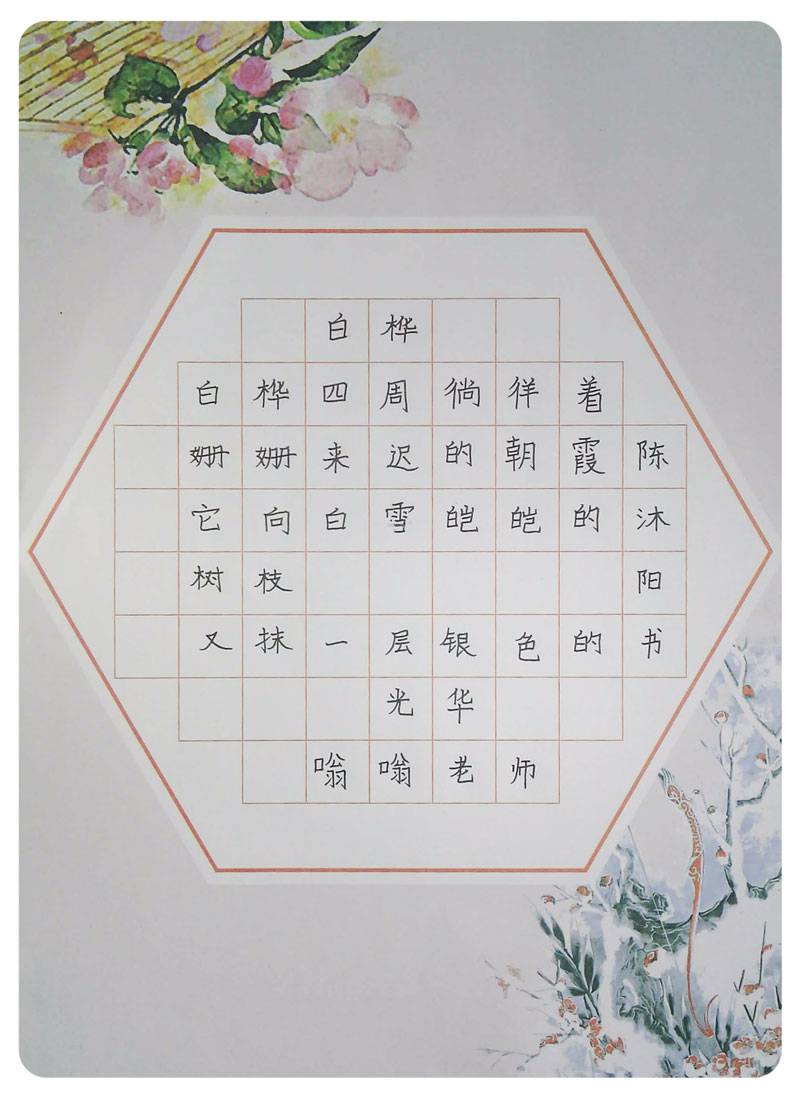 白桦
白桦四周徜徉着
姗姗来迟的朝霞
它向白雪皑皑的
树枝
又抹一层银色的
光华
嗡嗡老师
陈沐阳书